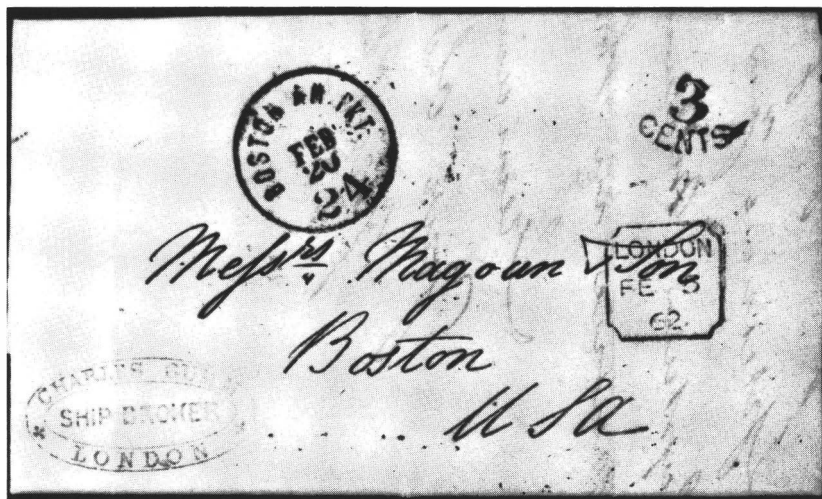 BOSTON AM. PKT.
FEB
20
24
3
CENTS
Messrs Magoun & Son
LONDON
FE 5
62
Boston
USA
CHARLES
SHIP BROKER
LONDON